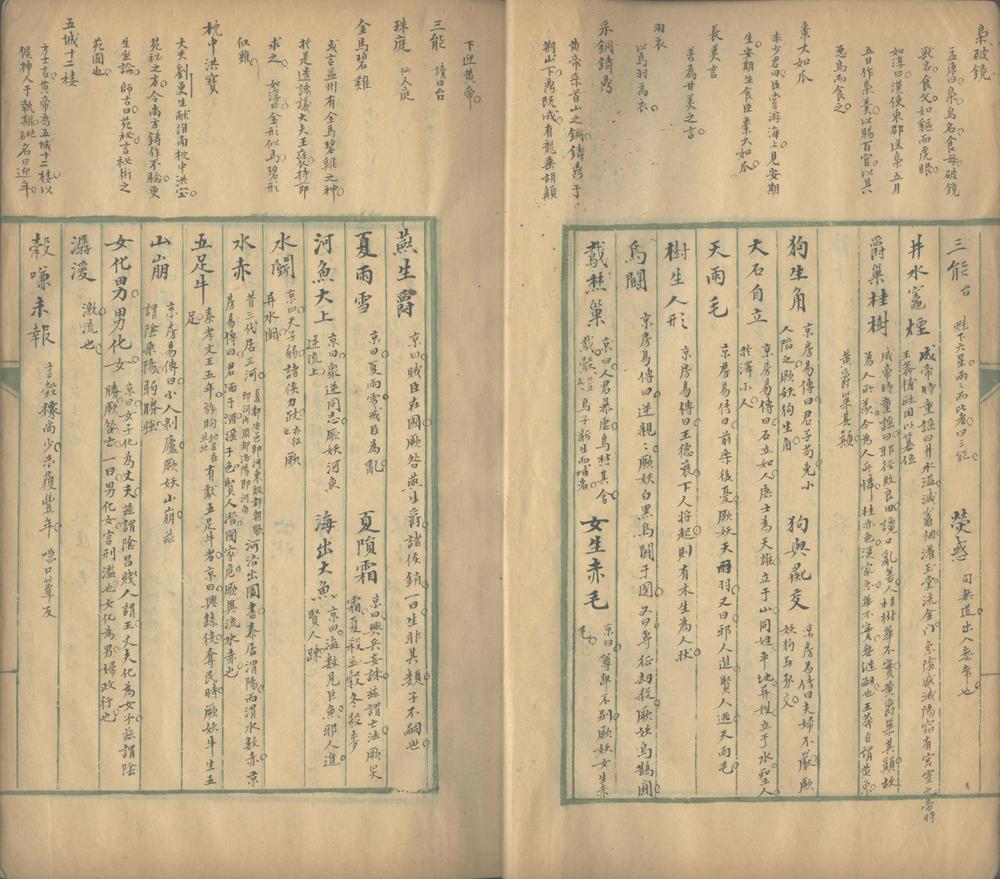 梟破鏡
孟康曰梟鳥名食母破鏡
獸名食父如貙而虎眼
如淳曰漢使東郡送梟五月
五日作梟羹以賜百官以其
惡鳥而食之
棗大如瓜
李少君曰臣嘗游海上見安期
生安期生食臣棗大如瓜
長美言
善為甘美之言
羽衣
以鳥羽為衣
采銅鑄鼎
黃帝采首山之銅鑄鼎于
荆山下鼎既成有龍垂胡髯
三能 台 魁下六星兩兩而比者曰三能
熒惑 司無道出入無常也
井水竈煙 成帝時童謠曰井水溢滅竈烟灌玉堂流金門 京陰盛滅陽竊有宮室之當時
王莽輔政因以篡位
爵巢桂樹 成帝時童謠曰邪徑敗良田讒口亂善人桂樹華不實黃爵巢其顛故
為人所羨今為人所憐桂赤色漢家象華不實無繼嗣也王莽自謂黃象
黃爵巢其顛
狗生角 京房易傳曰君子苟免小
人陷之厥妖狗生角
狗與彘交 京房易傳曰夫婦不嚴厥
妖狗與豕交
大石自立 京房易傳曰石立如人庶士為天雄立于山同姓平地異姓立于水聖人
於澤小人
天雨毛 京房易傳曰前樂後憂厥妖天雨羽又曰邪人進賢人逃天雨毛
樹生人形 京房易傳曰王德衰下人將起則有木生為人狀
烏鬭 京房易傳曰逆親親厥妖白黑烏鬭于國又曰專征劫殺厥妖烏鵲鬭
䳒焚巢 京曰人君暴虐鳥焚其舍
鳥子新生而哺者
女生赤毛 京曰尊卑不別厥妖女生赤
毛
下迎黃帝
三能 讀曰台
珠庭 仙人庭
金馬碧雞
或言益州有金馬碧雞之神
於是遣諫議大夫王褒持節
求之 如淳曰金形似馬碧形
似雞
枕中洪寶
大夫劉更生獻淮南枕中洪寶
苑祕之方令尚方鑄作不驗更
生坐論 師古曰苑祕言祕術之
苑囿也
五城十二樓
方士言黃帝為五城十二樓以
候神人于執期地名名曰迎年
燕生爵 京曰賊臣在國厥咎燕生爵諸侯銷一曰生非其類子不嗣世
夏雨雪 京曰夏雨雪戒臣為亂
夏隕霜 京曰興兵妄誅茲謂亡法厥災
霜夏殺五穀冬殺麥
河魚大上 京曰眾逆同志厥妖河魚
逆流上
海出大魚 京曰海數見巨魚邪人進
賢人疎
水鬭 京曰天子弱諸侯力政 亦征也 厥
異水鬭
水赤 昔三代居三河 夏都安邑即河東殷都朝歌
即河內周都洛陽即河南 河洛出圖書秦居渭陽而渭水數赤京
房易傳曰君湎于酒淫于色賢人潛國家危厥異流水赤也
五足牛 秦孝文王五年斿朐 地名在北地 有獻五足牛者京曰興繇役奪民時厥妖牛生五
足
山崩 京房易傳曰小人剝廬厥妖山崩茲
謂陰乘陽弱勝強
女化男男化女 京曰女子化為丈夫茲謂陰昌賤人謂王丈夫化為女子茲謂陰
勝厥咎亡一曰男化女宮刑濫也女化為男婦政行也
潺湲 激流也
穀嗛未報 言穀稼尚少未獲豐年 嗛口簟反